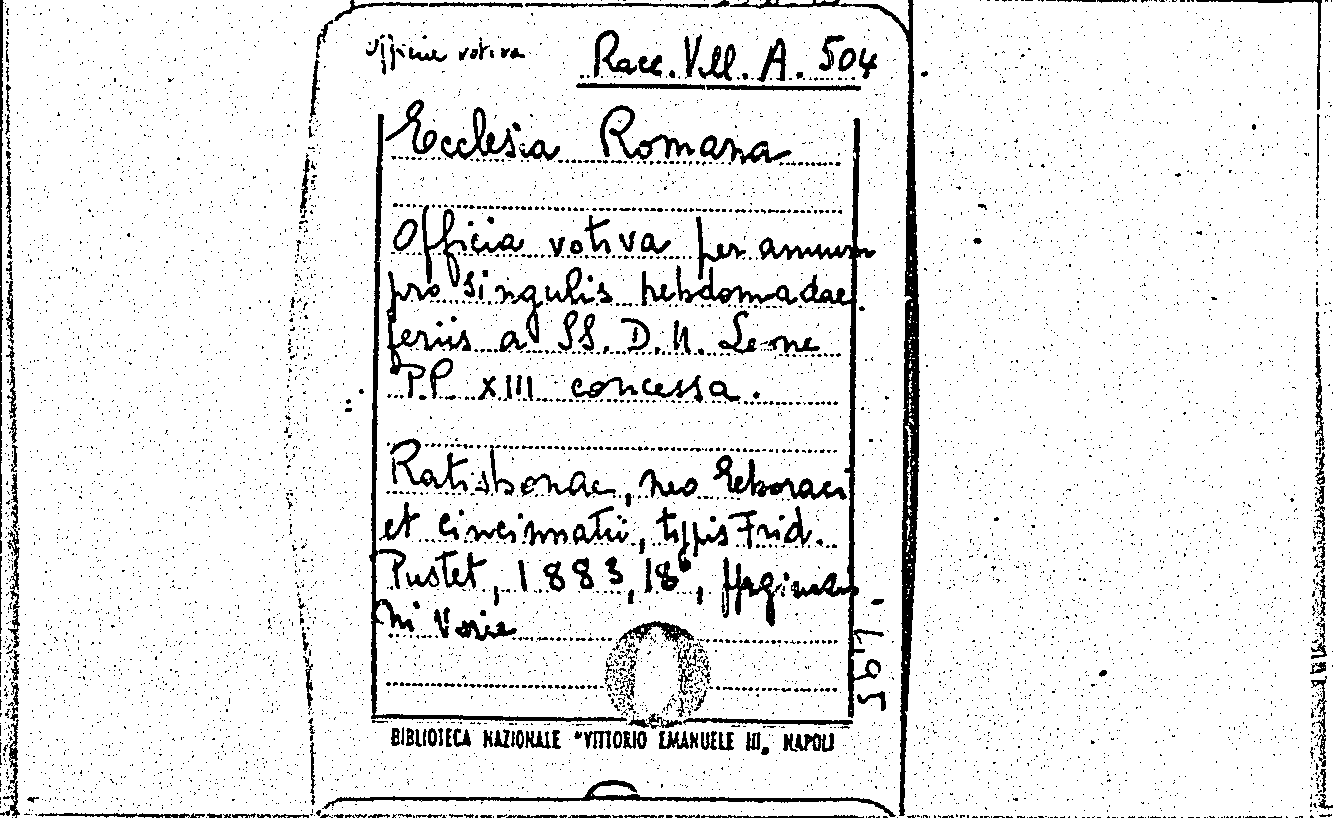 Officia votiva
Racc. Vill. A. 504
Ecclesia Romana
Officia votiva per annum
pro singulis hebdomadae
feriis a SS. D. N. Leone
P.P. XIII concessa.
Ratisbonae, neo Eboraci
et Cincinnatii, typis Frid.
Pustet, 1883, 18°,
ni Varie
495
BIBLIOTECA NAZIONALE "VITTORIO EMANUELE III„ NAPOLI